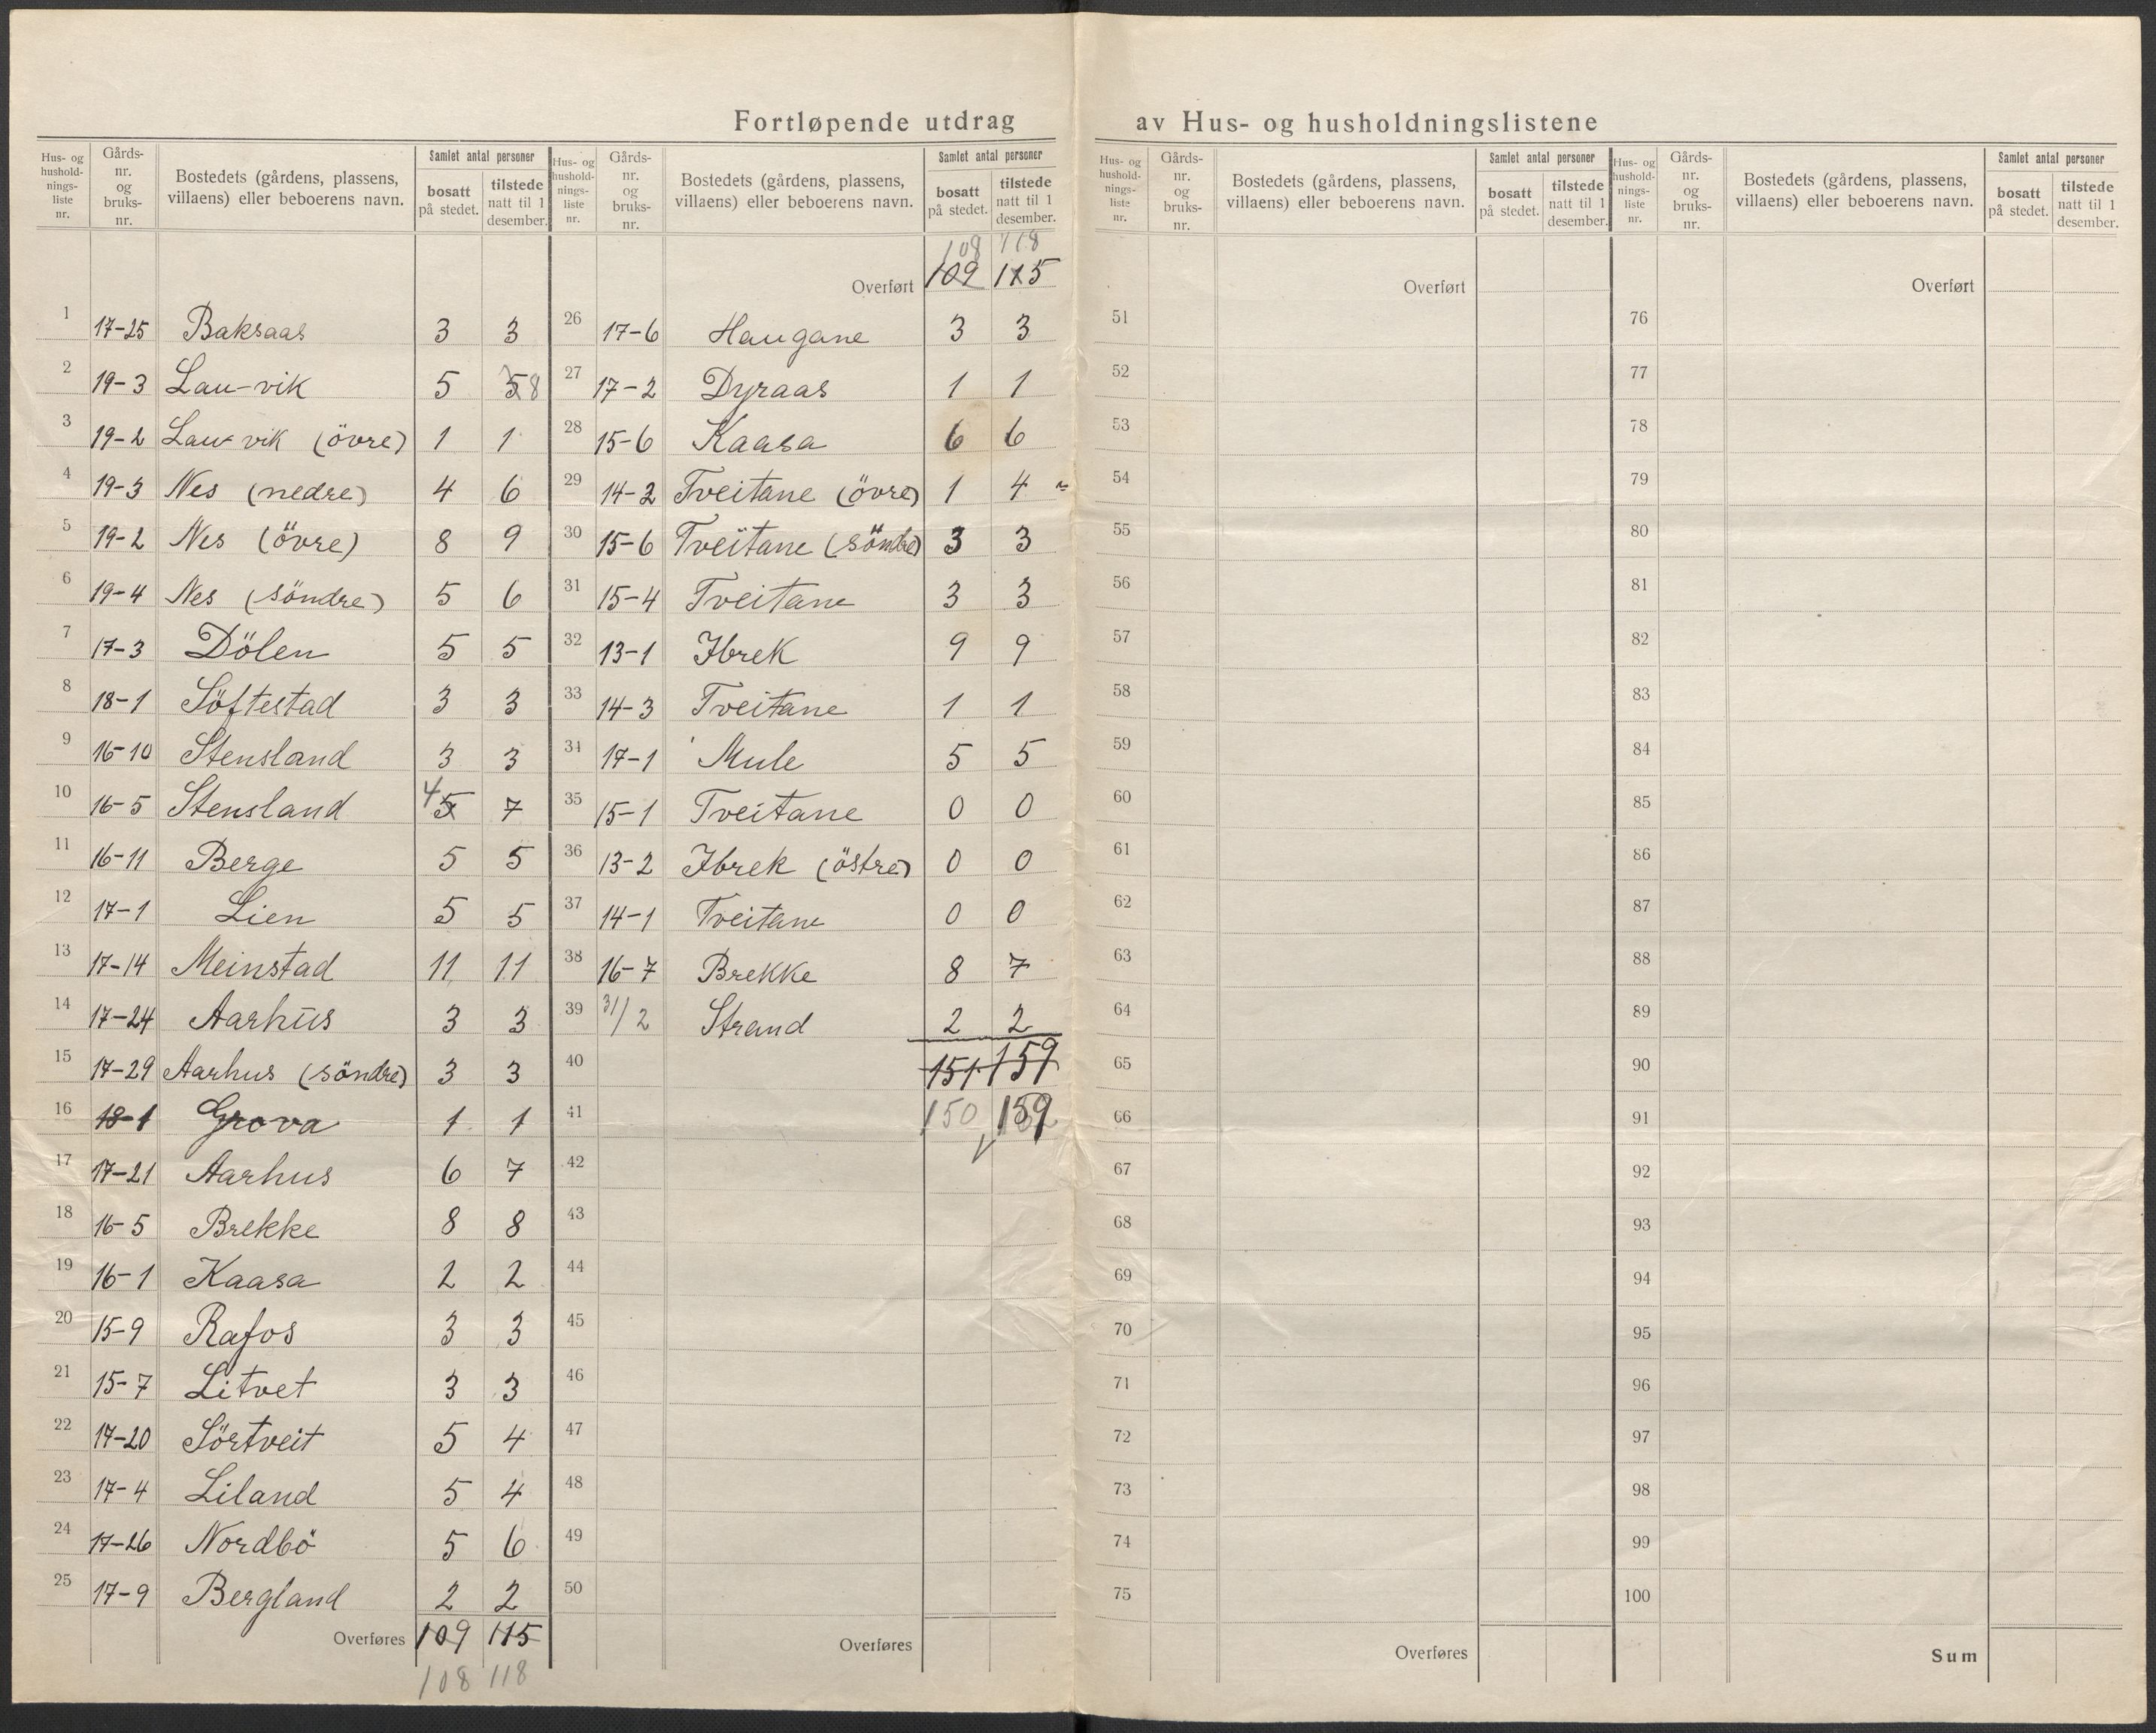 Fortløpende utdrag av Hus- og husholdningslistene
Hus- og husholdnings- liste nr. Gårds- nr. og bruks- nr. Bostedets (gårdens, plassens, villaens) eller beboerens navn. Samlet antal personer bosatt på stedet. tilstede natt til 1 desember.
1 17-25 Baksaas 3 3
2 19-3 Lau-vik 5 5 8
3 19-2 Lau-vik (övre) 1 1
4 19-3 Nes (nedre) 4 6
5 19-2 Nes (övre) 8 9
6 19-4 Nes (söndre) 5 6
7 17-3 Dölen 5 5
8 18-1 Söftestad 3 3
9 16-10 Stensland 3 3
10 16-5 Stensland 4 5 7
11 16-11 Berge 5 5
12 17-1 Lien 5 5
13 17-14 Meinstad 11 11
14 17-24 Aarhus 3 3
15 17-29 Aarhus (söndre) 3 3
16 18-1 Grova 1 1
17 17-21 Aarhus 6 7
18 16-5 Brekke 8 8
19 16-1 Kaasa 2 2
20 15-9 Rafos 3 3
21 15-7 Litvet 3 3
22 17-20 Sörtveit 5 4
23 17-4 Liland 5 4
24 17-26 Nordbö 5 6
25 17-9 Bergland 2 2
Overføres 109 115
108 118
Hus- og husholdnings- liste nr. Gårds- nr. og bruks- nr. Bostedets (gårdens, plassens, villaens) eller beboerens navn. Samlet antal personer bosatt på stedet. tilstede natt til 1 desember.
108 118
Overført 109 115
26 17-6 Haugane 3 3
27 17-2 Dyraas 1 1
28 15-6 Kaasa 6 6
29 14-2 Tveitane (övre) 1 4
30 15-6 Tveitane (söndre) 3 3
31 15-4 Tveitane 3 3
32 13-1 Ibrek 9 9
33 14-3 Tveitane 1 1
34 17-1 Mule 5 5
35 15-1 Tveitane 0 0
36 13-2 Ibrek (östre) 0 0
37 14-1 Tveitane 0 0
38 16-7 Brekke 8 7
39 31/2 Strand 2 2
40 151 159
41 150 159
42
43
44
45
46
47
48
49
50
Overføres
Hus- og husholdnings- liste nr. Gårds- nr. og bruks- nr. Bostedets (gårdens, plassens, villaens) eller beboerens navn. Samlet antal personer bosatt på stedet. tilstede natt til 1 desember.
Overført
51
52
53
54
55
56
57
58
59
60
61
62
63
64
65
66
67
68
69
70
71
72
73
74
75
Overføres
Hus- og husholdnings- liste nr. Gårds- nr. og bruks- nr. Bostedets (gårdens, plassens, villaens) eller beboerens navn. Samlet antal personer bosatt på stedet. tilstede natt til 1 desember.
Overført
76
77
78
79
80
81
82
83
84
85
86
87
88
89
90
91
92
93
94
95
96
97
98
99
100
Sum